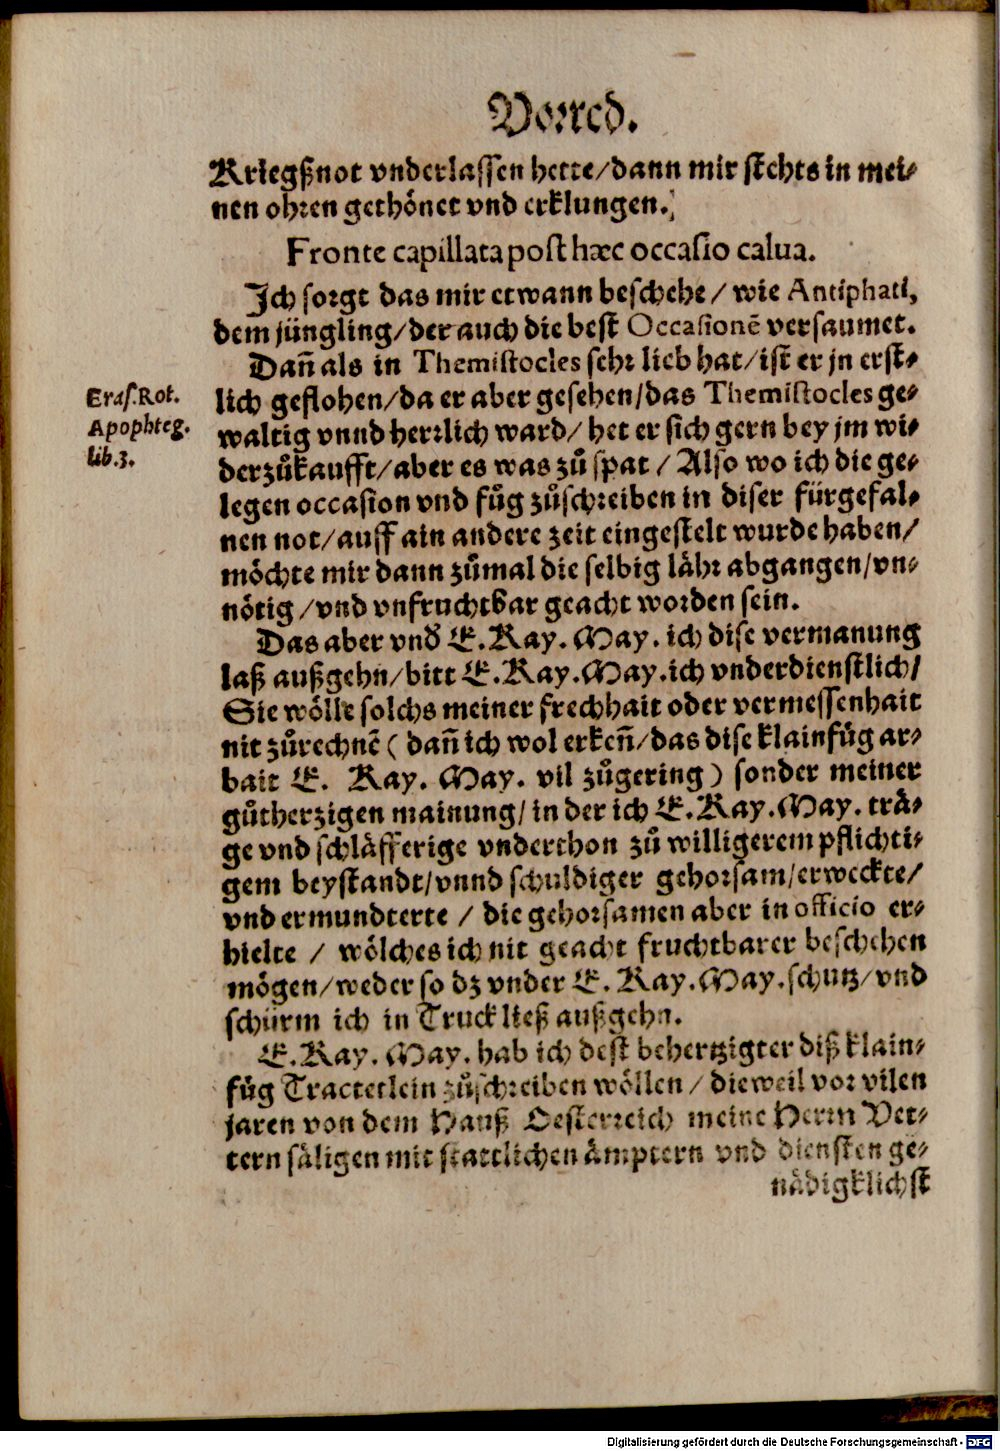 Vorred.
Kriegßnot vnderlassen hette/dann mir stehts in mei⸗
nen ohren gethönet vnd erklungen.
Fronte capillata post hæc occasio calua.
Ich sorgt das mir etwann beschehe / wie Antiphati,
dem jüngling/der auch die best Occasionē versaumet.
Dañ als in Themistocles sehr lieb hat/ist er jn erst⸗
lich geflohen/da er aber gesehen/das Themistocles ge⸗
Eras. Rot.
Apophteg.
lib. 3.
waltig vnnd herrlich ward/ het er sich gern bey jm wi⸗
derzůkaufft/aber es was zů spat / Also wo ich die ge⸗
legen occasion vnd fůg zůschreiben in diser fürgefal⸗
nen not/auff ain andere zeit eingestelt wurde haben/
möchte mir dann zůmal die selbig lähr abgangen/vn⸗
nötig /vnd vnfruchtbar geacht worden sein.
Das aber vnd̄ E. Kay. May. ich dise vermanung
laß außgehn/bitt E. Kay. May. ich vnderdienstlich/
Sie wölle solchs meiner frechhait oder vermessenhait
nit zůrechnē ( dañ ich wol erkeñ/das dise klainfüg ar⸗
bait E. Kay. May. vil zůgering) sonder meiner
gůtherzigen mainung/ in der ich E. Kay. May. trä⸗
ge vnd schläfferige vnderthon zů willigerem pflichti⸗
gem beystandt/vnnd schuldiger gehorsam/erweckte/
vnd ermundterte / die gehorsamen aber in officio er⸗
hielte / wölches ich nit geacht fruchtbarer beschehen
mögen/weder so dz vnder E. Kay. May. schutz/vnd
schirm ich in Truck ließ außgehn.
E. Kay. May. hab ich dest behertzigter diß klain⸗
füg Tractetlein zůschreiben wöllen / dieweil vor vilen
jaren von dem Hauß Oesterreich meine Herrn Vet⸗
tern säligen mit stattlichen ämptern vnd diensten ge⸗
nädigklichst
Digitalisierung gefördert durch die Deutsche Forschungsgemeinschaft - DFG